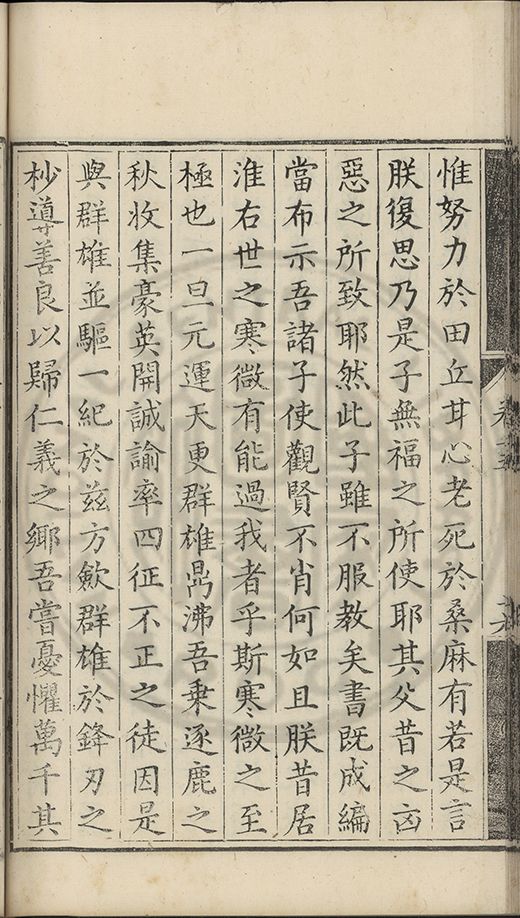 惟努力於田丘甘心老死於桑麻有若是言
朕復思乃是子無福之所使耶其父昔之凶
惡之所致耶然此子雖不服教矣書既成編
當布示吾諸子使觀賢不肖何如且朕昔居
淮右世之寒微有能過我者乎斯寒微之至
極也一旦元運天更群雄鼎沸吾乘逐鹿之
秋收集豪英開誠諭率四征不正之徒因是
與群雄並驅一紀於茲方歛群雄於鋒刃之
杪導善良以歸仁義之鄉吾嘗憂懼萬千其